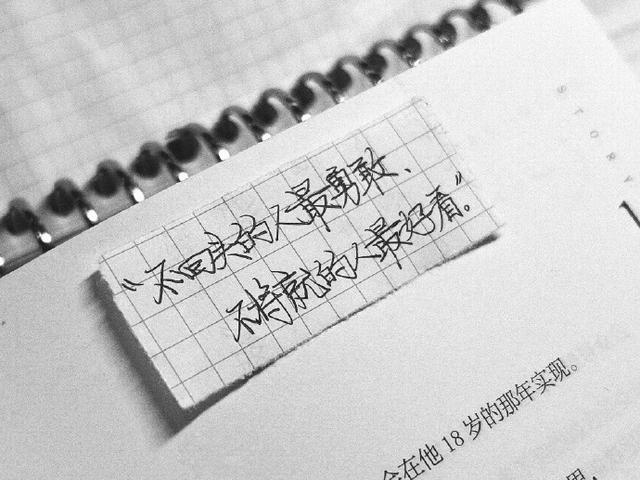 STORY
“不回头的人最勇敢、
不将就的人最好看。”
会在他18岁的那年实现。